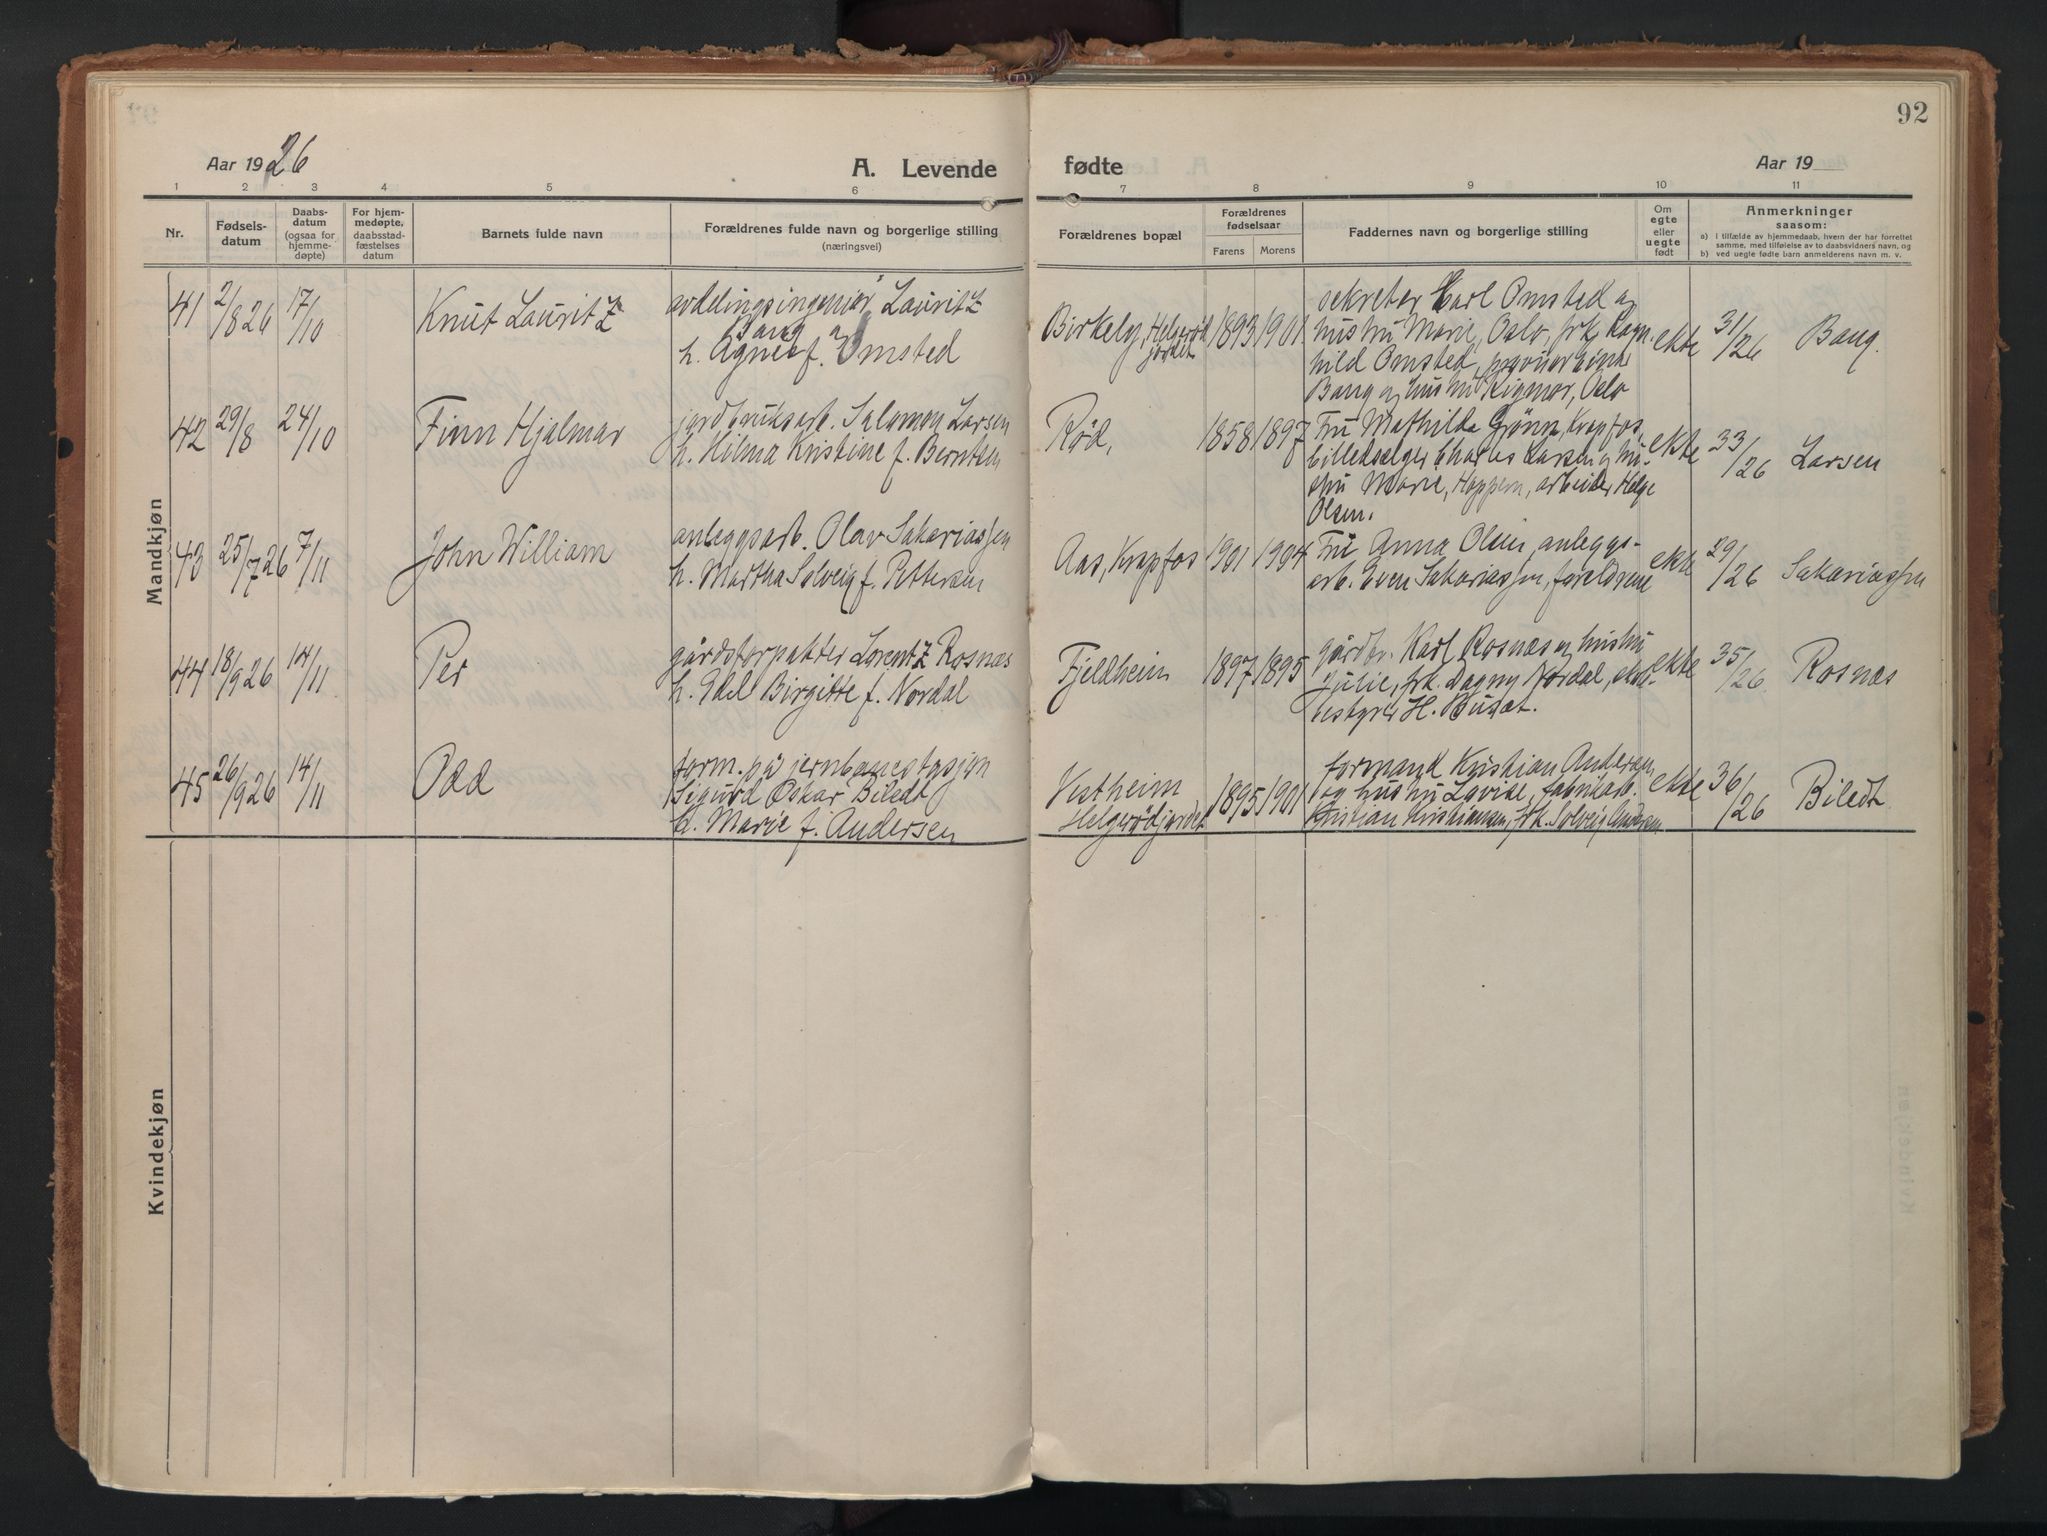 92
Aar 1926
A. Levende
fødte
Aar 19
1 2 3 4 5 6 7 8 9 10 11
Nr.
Fødsels-
datum
Daabs-
datum
(ogsaa for
hjemme-
døpte)
For hjem-
medøpte,
daabsstad-
fæstelses
datum
Barnets fulde navn
Forældrenes fulde navn og borgerlige stilling
(næringsvei)
Forældrenes bopæl
Forældrenes
fødselsaar
Farens Morens
Faddernes navn og borgerlige stilling
Om
egte
eller
uegte
født
Anmerkninger
saasom:
a) i tilfælde av hjemmedaab, hvem der har forrettet
samme, med tilføielse av to daabsvidners navn, og
b) ved uegte fødte barn anmelderens navn m. v.
Mandkjøn
41 2/8 26 17/10 Knut Lauritz
avdelingsingeniør Lauritz
Bang og
h. Agnes f. Omsted
Birkely, Helgerød
jordet
1893 1901
sekretær Carl Omsted og
hustru Marie, Oslo, frk. Ragn-
hild Omsted,
Bang og hustru Rigmor, Oslo
ekte 31/26 Bang.
42 29/8 24/10 Finn Hjalmar
jordbruksarb. Salomon Larsen
h. Hilma Kristine f. Berntsen
Rød,
1858 1897
Fru Mathilde Grønn, Krapfos,
billedsælger Charles Larsen og hu-
stru Marie, Hoppern, arbeider Helge
Olsen.
ekte 33/26 Larsen
43 25/7 26 7/11 John William
anleggsarb. Olav Sakariassen
h. Martha Solveig f. Pettersen
Aas, Krapfos
1901 1904
Fru Anna Olsen, anleggs-
arb. Even Sakariassen, foreldrene
ekte 29/26 Sakariassen
44 18/9 26 14/11 Per
gårdsforpakter Lorentz Rosnæs
h. Edel Birgitte f. Nordal
Fjeldheim
1897 1895
gårdbr. Karl Rosnæs og hustru
Julie, frk. Dagny Nordal, skole-
bestyrer H. Busæt.
ekte 35/26 Rosnæs
45 26/9 26 14/11 Odd
form. på jernbanestasjon
Sigurd Oskar Biledt
h. Marie f. Andersen
Vestheim
Helgerødjordet
1895 1901
formand Kristian Andersen
og hustru Lovise, fabrikarb.
Kristian Kristiansen, frk. Solveig Andersen
ekte 36/26 Biledt
Kvindekjøn